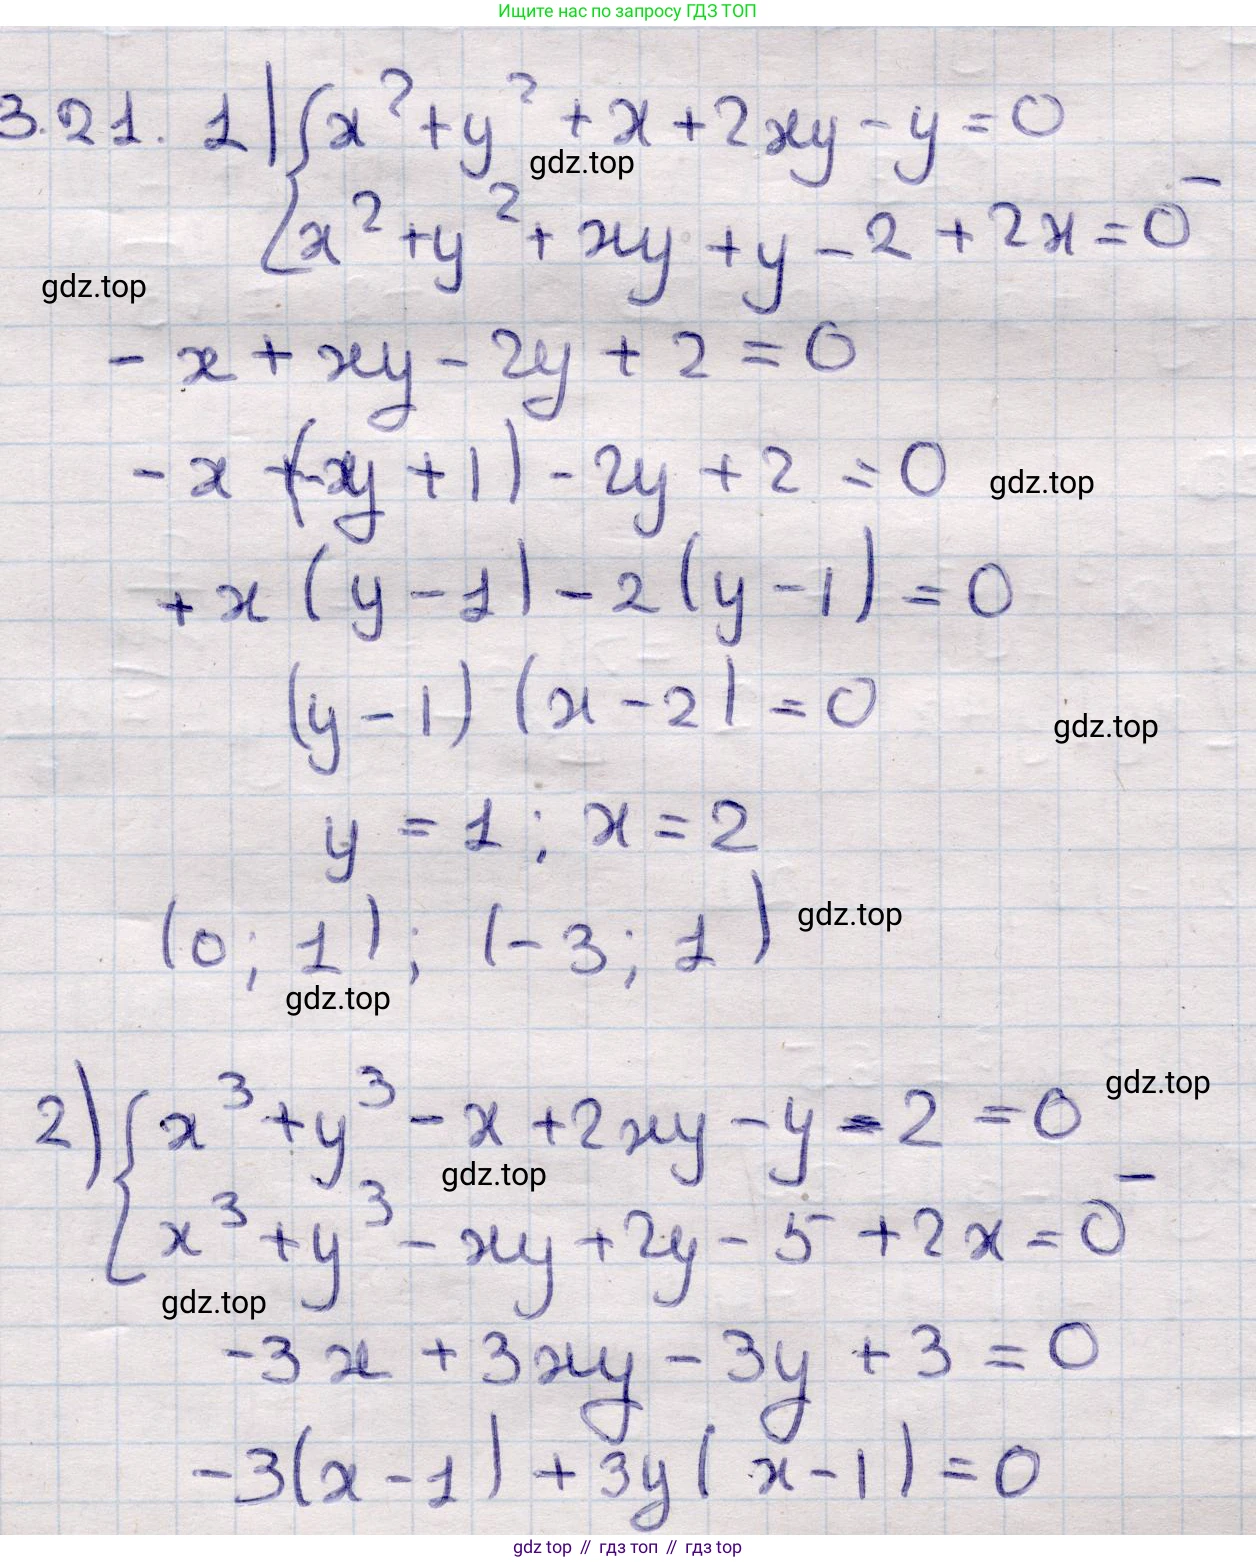 Ищите нас по запросу ГДЗ ТОП
3.21. 1) { x² + y² + x + 2xy - y = 0
gdz.top
{ x² + y² + xy + y - 2 + 2x = 0 -
gdz.top
- x + xy - 2y + 2 = 0
- x + (-xy + 1) - 2y + 2 = 0
gdz.top
+ x (y - 1) - 2 (y - 1) = 0
(y - 1) (x - 2) = 0
gdz.top
y = 1 ; x = 2
(0; 1) ; (-3; 1)
gdz.top
gdz.top
gdz.top
2) { x³ + y³ - x + 2xy - y - 2 = 0
gdz.top
{ x³ + y³ - xy + 2y - 5 + 2x = 0 -
gdz.top
-3x + 3xy - 3y + 3 = 0
-3(x - 1) + 3y( x - 1) = 0
gdz top // гдз топ // гдз top